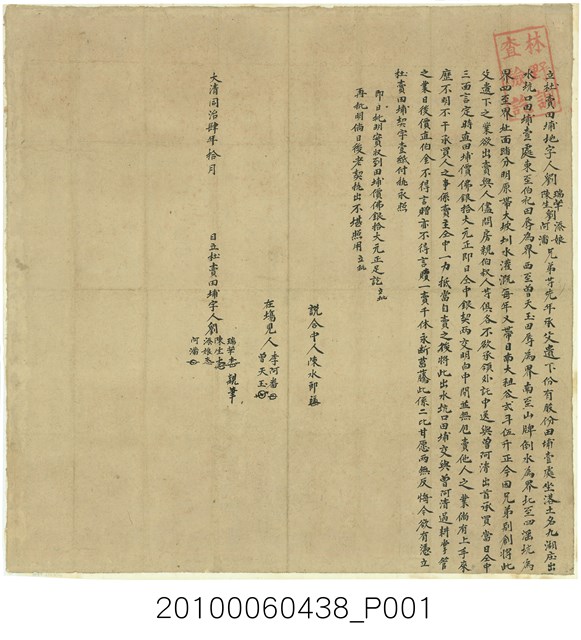 林野調
查驗訖
立杜賣田埔地字人劉瑞榮 添娘 陳生 劉阿滿兄弟等先年承父遺下份有股份田埔壹處坐落土名九湖庄出
水坑口田埔壹處東至伯祀田唇為界西至曾天玉田唇為界南至山牌倒水為界北至四滥坑為
界四至界址面踏分明原帶大坡圳水灌溉每年又帶日南大租谷玄斗伍升正今因兄弟別創將此
父遺下之業欲出賣與人儘問房親伯叔人等俱各不欲承領外託中送與曾阿清出首承買當日仝中
三面言定時值田埔價佛銀拾大元正即日仝中銀契兩交明白中間並無包賣他人之業倘有上手來
歷不明不干承買人之事係賣主仝中一力抵當自賣之後將此出水坑口田埔交與曾阿清過耕掌管
之業日後價值伯金不得言贈亦不得言贖一賣千休永斷葛藤此係二比甘愿兩無反悔今欲有憑立
杜賣田埔契字壹紙付執永照
即日批明實收到田埔價佛銀拾大元正足訖立批
再批明倘日後老契執出不堪照用立批
說合中人陳水郭
在場見人李阿番 曾天玉
日立杜賣田埔字人劉瑞榮 陳生 添娘 阿滿 親筆
大清同治肆年拾月
20100060438_P001